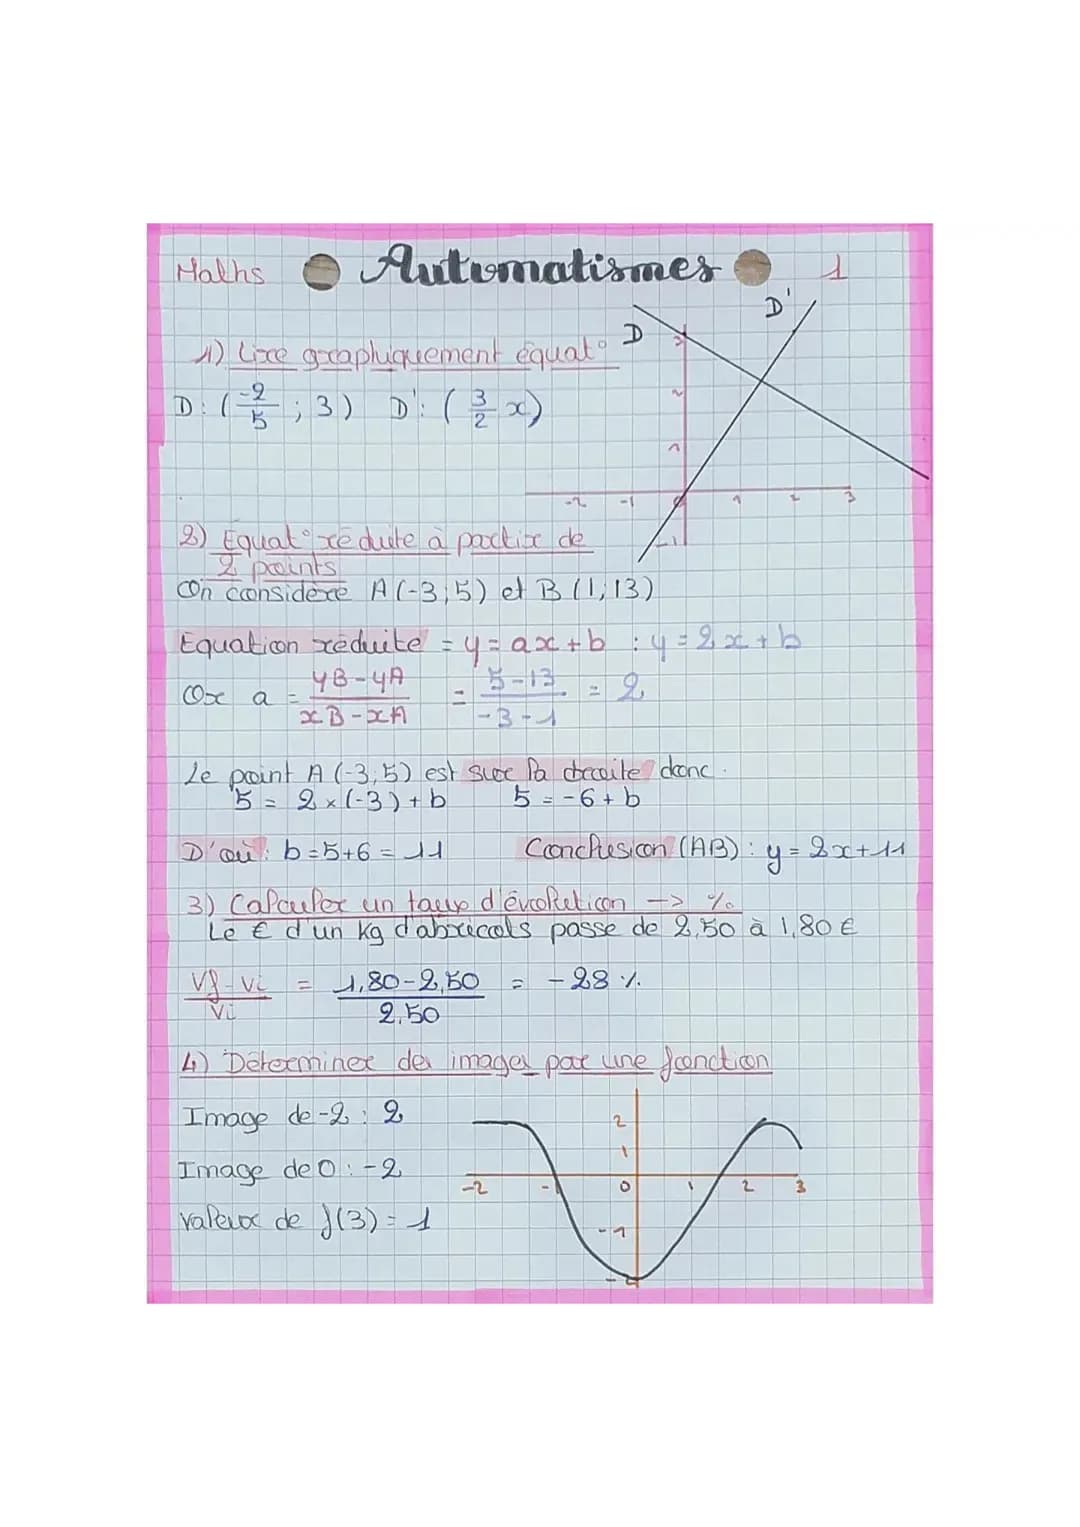 Maths Automatismes 1
1) Lire graphiquement équat°
D: (-2/5 ; 3) D': (3/2 x)
D
D'
3
2
1
-2 -1 0 1 2 3
-1
2) Equat° réduite à partir de
2 points
On considère A(-3;5) et B(1;13)
Equation réduite = y = ax + b : y = 2x + b
Or a = yB-yA / xB-xA = 5-13 / -3-1 = 2
Le point A(-3;5) est sur la droite donc.
5 = 2×(-3)+b 5 = -6+b
D'où : b=5+6=11 Conclusion (AB) : y = 2x+11
3) Calculer un taux d'évolution --> %
Le € d'un kg d'abricots passe de 2,50 à 1,80 €
Vf-Vi / Vi = 1,80-2,50 / 2,50 = -28 %.
4) Déterminer des images par une fonction
Image de -2 : 2
Image de 0 : -2
Valeur de f(3) = 1
2
1
-2 -1 0 1 2 3
-1
-2